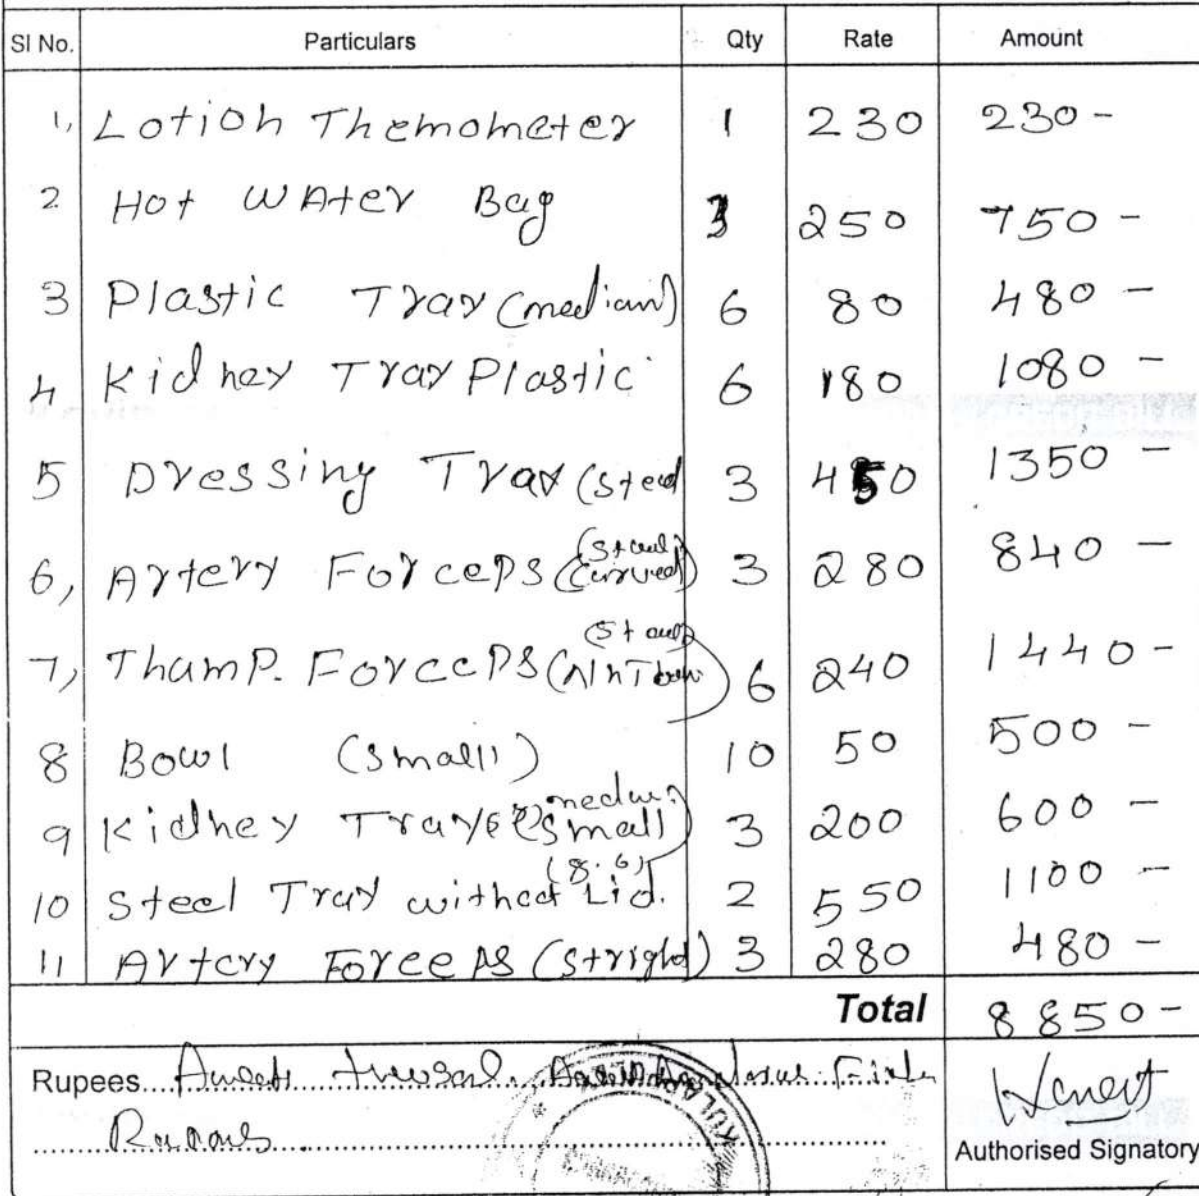 Sl No. Particulars Qty Rate Amount
1, Lotion Themometer 1 230 230 -
2 Hot Water Bag 3 250 750 -
3 Plastic Tray (medium) 6 80 480 -
4 Kidney Tray Plastic 6 180 1080 -
5 Dressing Tray (Steel 3 450 1350 -
6, Artery Forceps (Curved) 3 280 840 -
7, Thump. Forceps 6 240 1440 -
8 Bowl (Small) 10 50 500 -
9 Kidney Tray small) 3 200 600 -
(8.6)
10 Steel Tray without Lid. 2 550 1100 -
11 Artery Forceps (Stright) 3 280 480 -
Total 8850 -
Rupees
Authorised Signatory